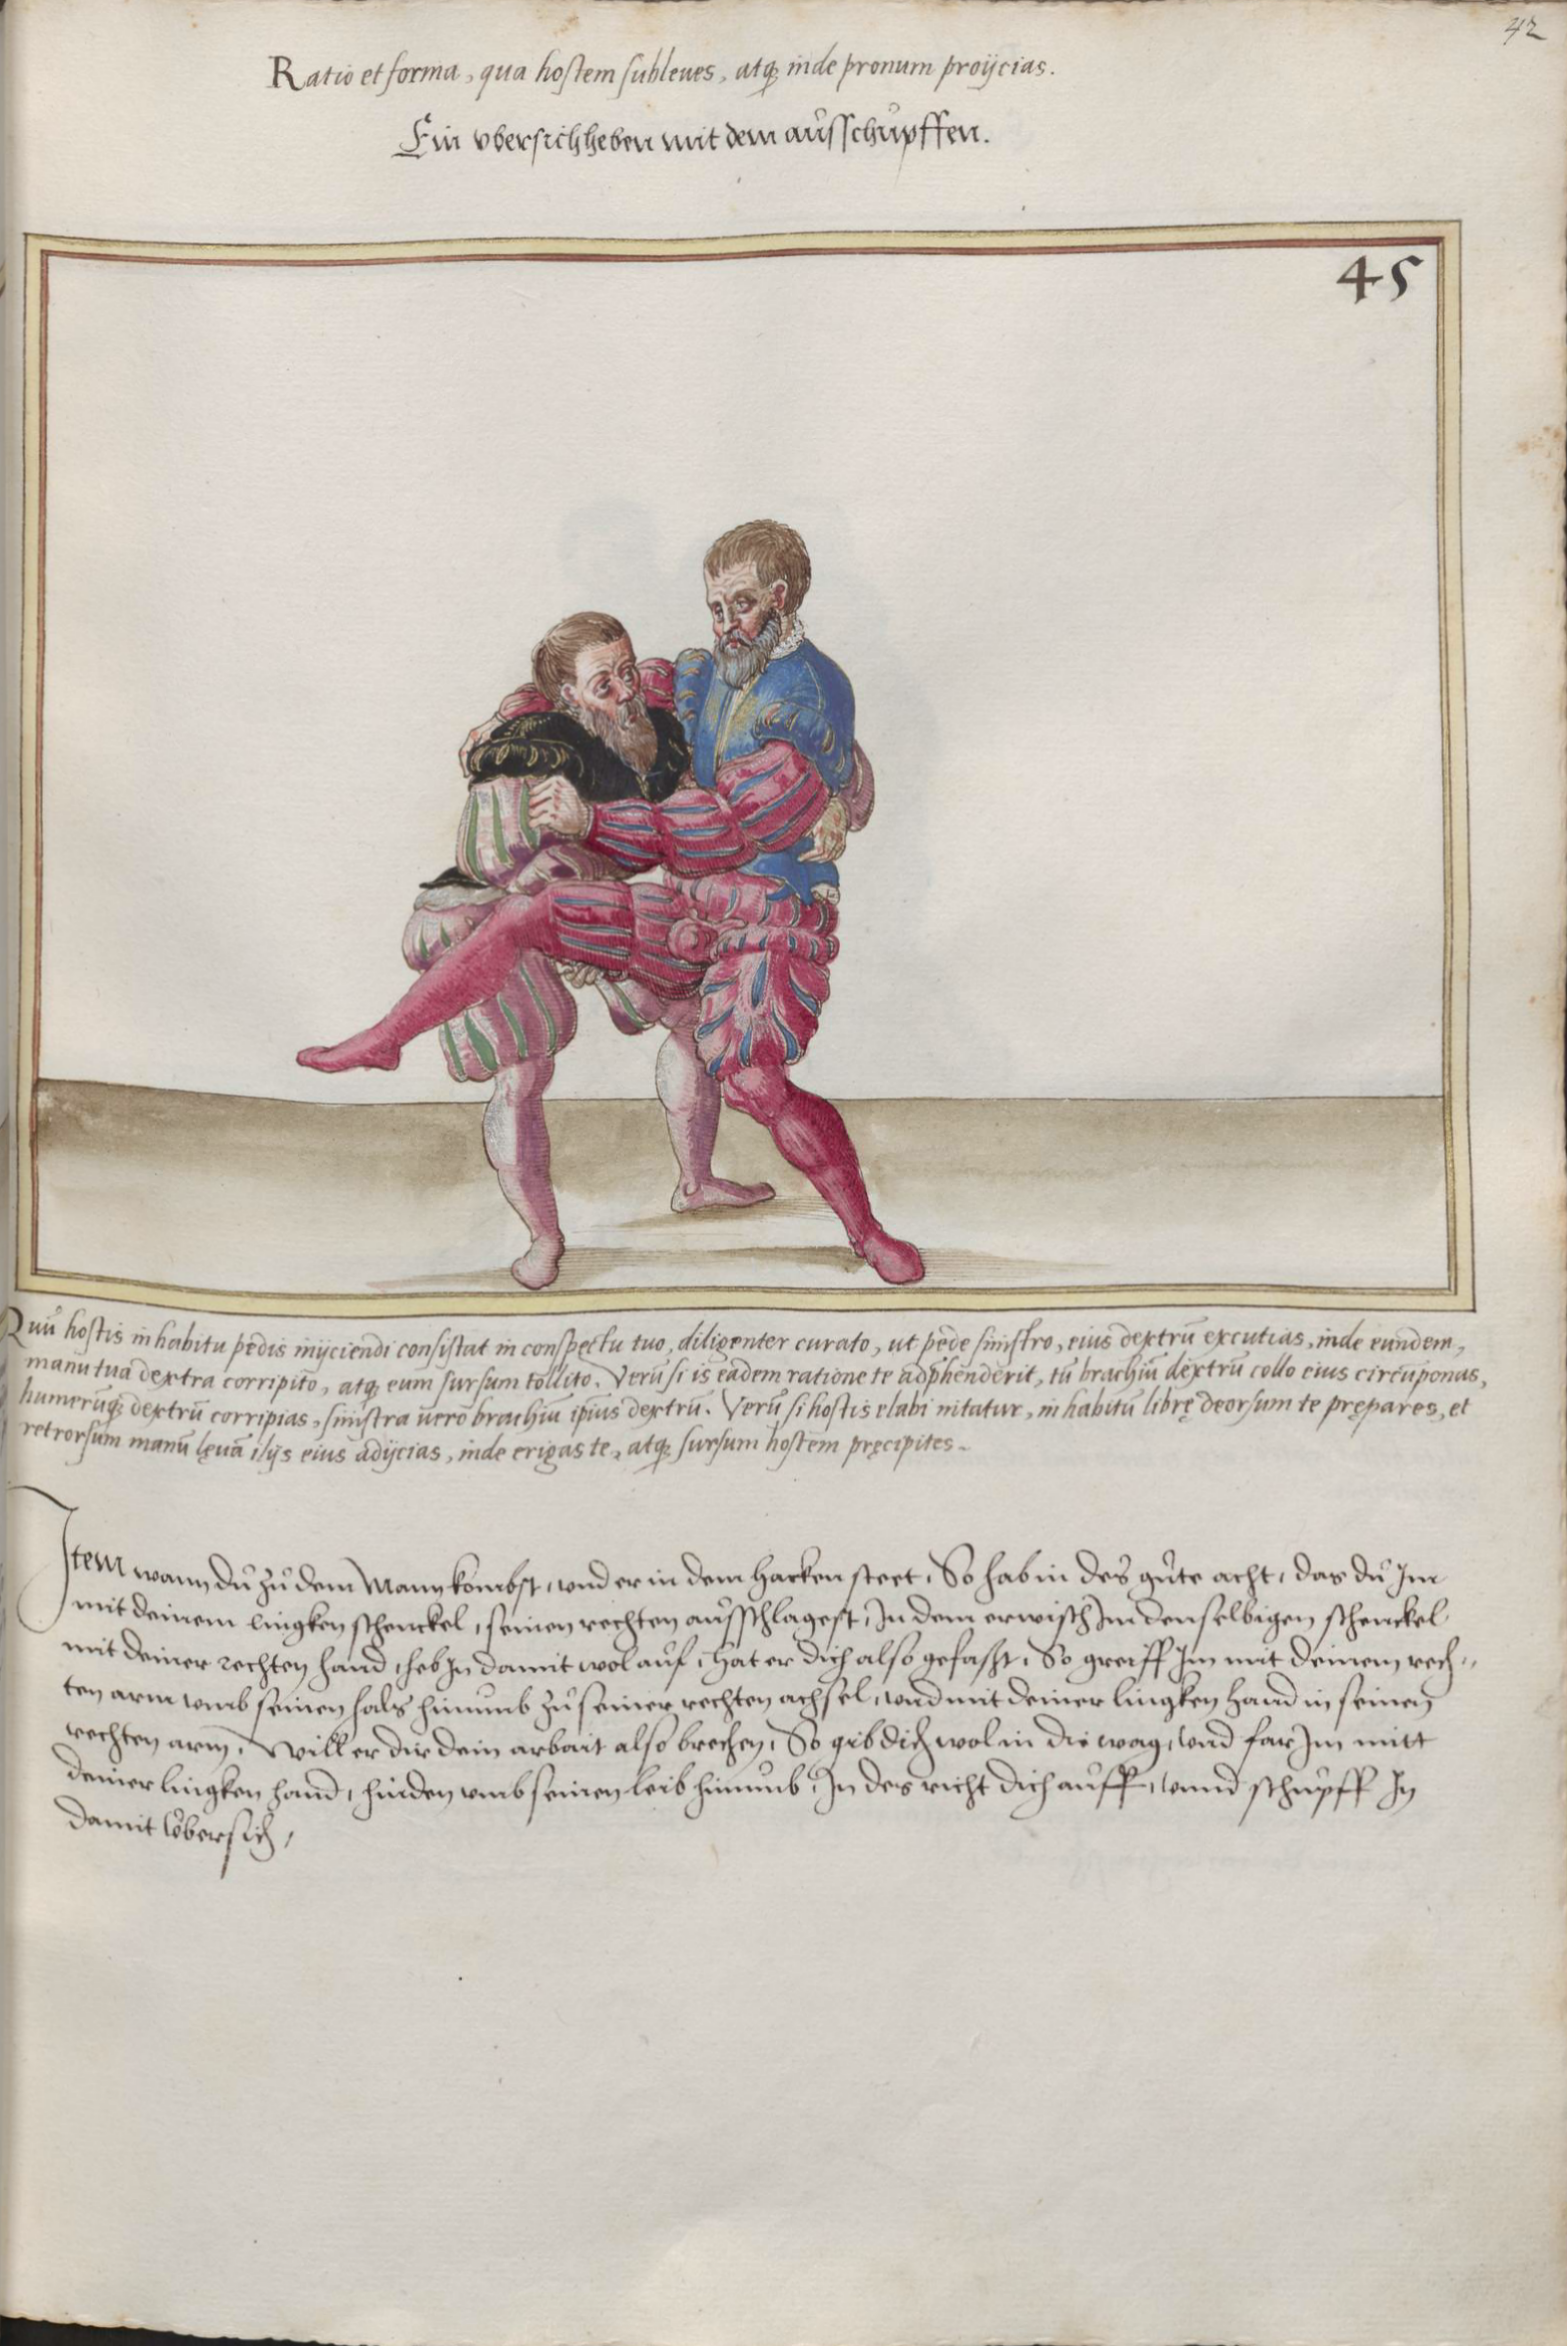 42
Ratio et forma, qua hostem subleues, atq; inde pronum proijcias.
Ein vbersichheben mit dem aůsschůpffen.
45
Quũ hostis in habitu pedis inijciendi consistat in conspectu tuo, diligenter curato, ut pede sinistro, eius dextrũ excutias, inde eundem,
manu tua dextra corripito, atq; eum sursum tollito. Verũ si is eadem ratione te adp̃henderit, tũ brachiũ dextrũ collo eius circũponas,
humerũq; dextrũ corripias, sinistra uero brachiũ ipius dextrũ. Verũ si hostis elabi nitatur, in habitũ librę deorsum te prępares, et
retrorsum manũ lęuã ilijs eius adijcias, inde erigas te, atq; sursum hostem pręcipites.
Item wann dů zů dem Mann kombst, vnd er in dem Harken steet, So hab in des gůte acht, das dů Im
mit deinem lingken schenckel, seinen rechten aůsschlagest, In dem erwisch Im denselbigen schenckel
mit deiner rechten hand, heb In damit wol aůf, Hat er dich also gefasst, So greiff Im mit deinem rech-
ten arm vmb seinen hals hinumb zů seiner rechten achsel, vnd mit deiner lingken hand in seinen
rechten arm, Will er dir dein arbait also brechen, So gib dich wol in die wag, vnd far Im mitt
deiner lingken hand, hinden vmb seinen leib hinumb, In des richt dich aůff, vnnd schůpff In
damit vbersich,